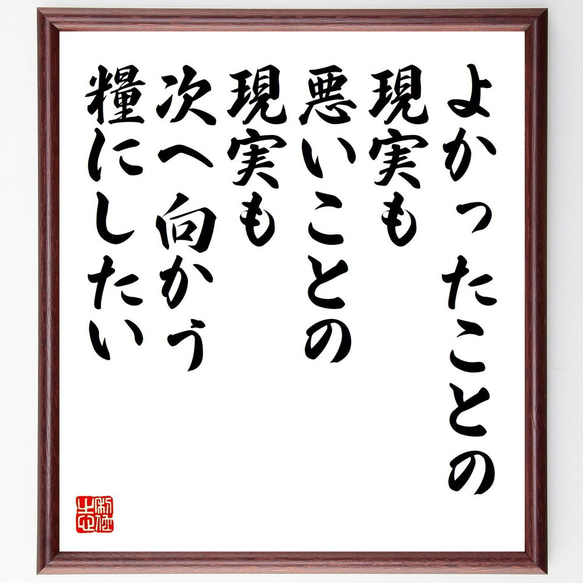 よかったことの
現実も
悪いことの
現実も
次へ向かう
糧にしたい